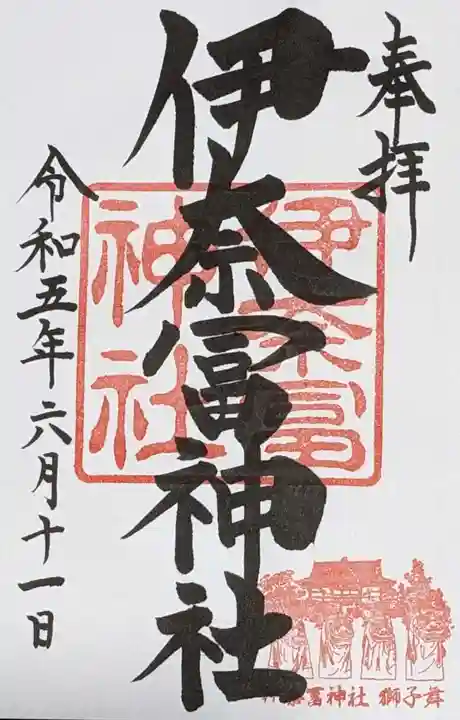 奉拝
伊奈冨神社
伊奈冨
神社
令和五年六月十一日
奈冨神社 獅子舞